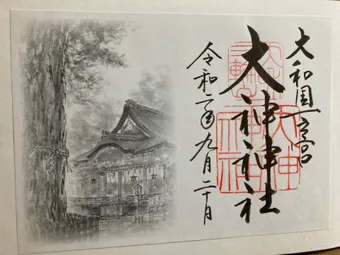 大和国一之宮
大神神社
令和二年九月二十日